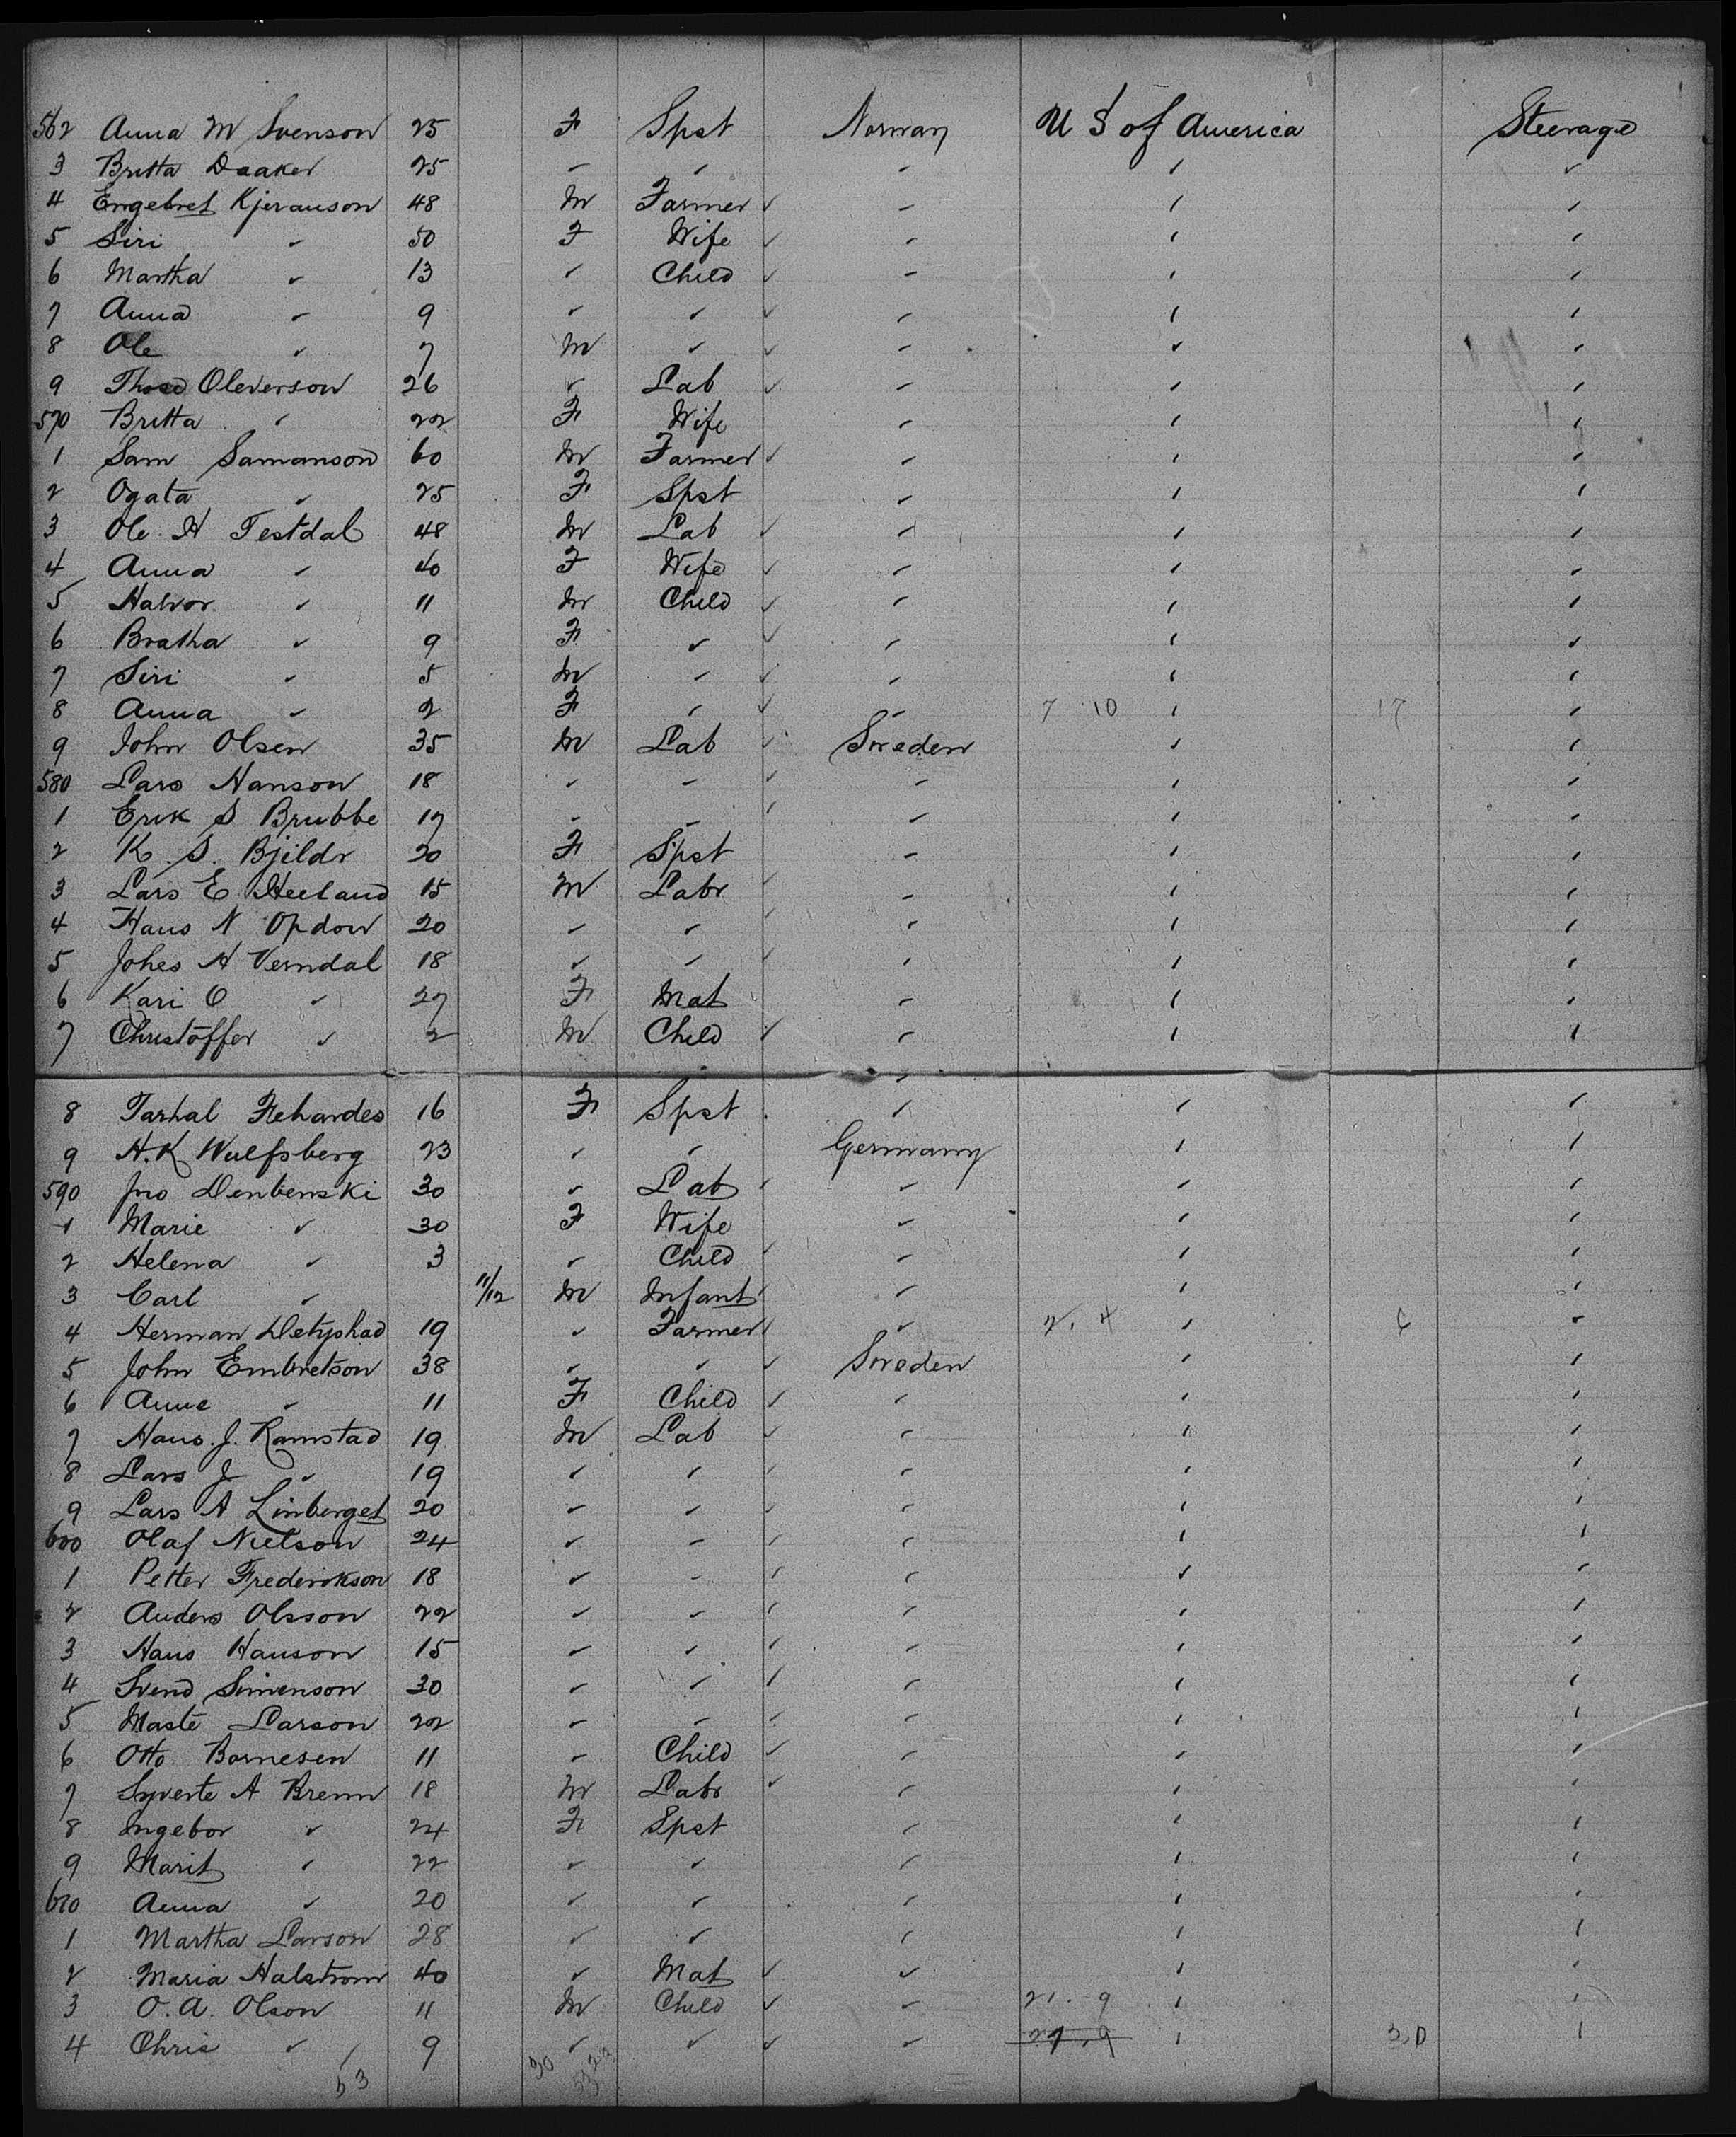 562 Anna M Svenson 25 F Spst Norway U S of America Steerage
3 Britta Daaker 25 " " " " "
4 Engebret Kjeranson 48 M Farmer " " "
5 Siri " 50 F Wife " " "
6 Martha " 13 " Child " " "
7 Anna " 9 " " " " "
8 Ole " 7 M " " " "
9 Oleverson 26 " Lab " " "
570 Britta " 22 F Wife " " "
1 Sam Samanson 60 M Farmer " " "
2 Ogata " 25 F Spst " " "
3 Ole H Testdal 48 M Lab " " "
4 Anna " 40 F Wife " " "
5 Halvor " 11 M Child " " "
6 Bratha " 9 F " " " "
7 Siri " 5 M " " " "
8 Anna " 2 F " " 7 10 " 17 "
9 John Olsen 35 M Lab Sweden " "
580 Lars Hanson 18 " " " " "
1 Erik S Brubbe 17 " " " " "
2 K. S. Bjildr 20 F Spst " " "
3 Lars E Heeland 15 M Labr " " "
4 Hans N Opdow 20 " " " " "
5 Johes H Verndal 18 " " " " "
6 Kari O " 27 F Mat " " "
7 Christoffer " 2 M Child " " "
8 Tarhal Fehardes 16 F Spst " " "
9 H.K Wulfsberg 23 " " Germany " "
590 Jno Denbenski 30 " Lab " " "
1 Marie " 30 F Wife " " "
2 Helena " 3 " Child " " "
3 Carl " 11/12 M Infant " " "
4 Herman Detyshad 19 " Farmer " 2. 4 " 6 "
5 John Embretson 38 " " Sweden " "
6 Anne " 11 F Child " " "
7 Hans. J. Ramstad 19 M Lab " " "
8 Lars J " 19 " " " " "
9 Lars A Linberget 20 " " " " "
600 Olaf Nielson 24 " " " " "
1 Petter Frederikson 18 " " " " "
2 Anders Olsson 22 " " " " "
3 Hans Hanson 15 " " " " "
4 Svend Simenson 30 " " " " "
5 Maste Larson 22 " " " " "
6 Otto Bornesen 11 " Child " " "
7 Syverte A Brenn 18 M Labr " " "
8 Ingebor " 24 F Spst " " "
9 Marit " 22 " " " " "
610 Anna " 20 " " " " "
1 Martha Larson 28 " " " " "
2 Maria Halstrom 40 " Mat " " "
3 O. A. Olson 11 M Child " 21. 9 " "
4 Chris " 9 " " " 21. 9 " 30 "
53 30 23